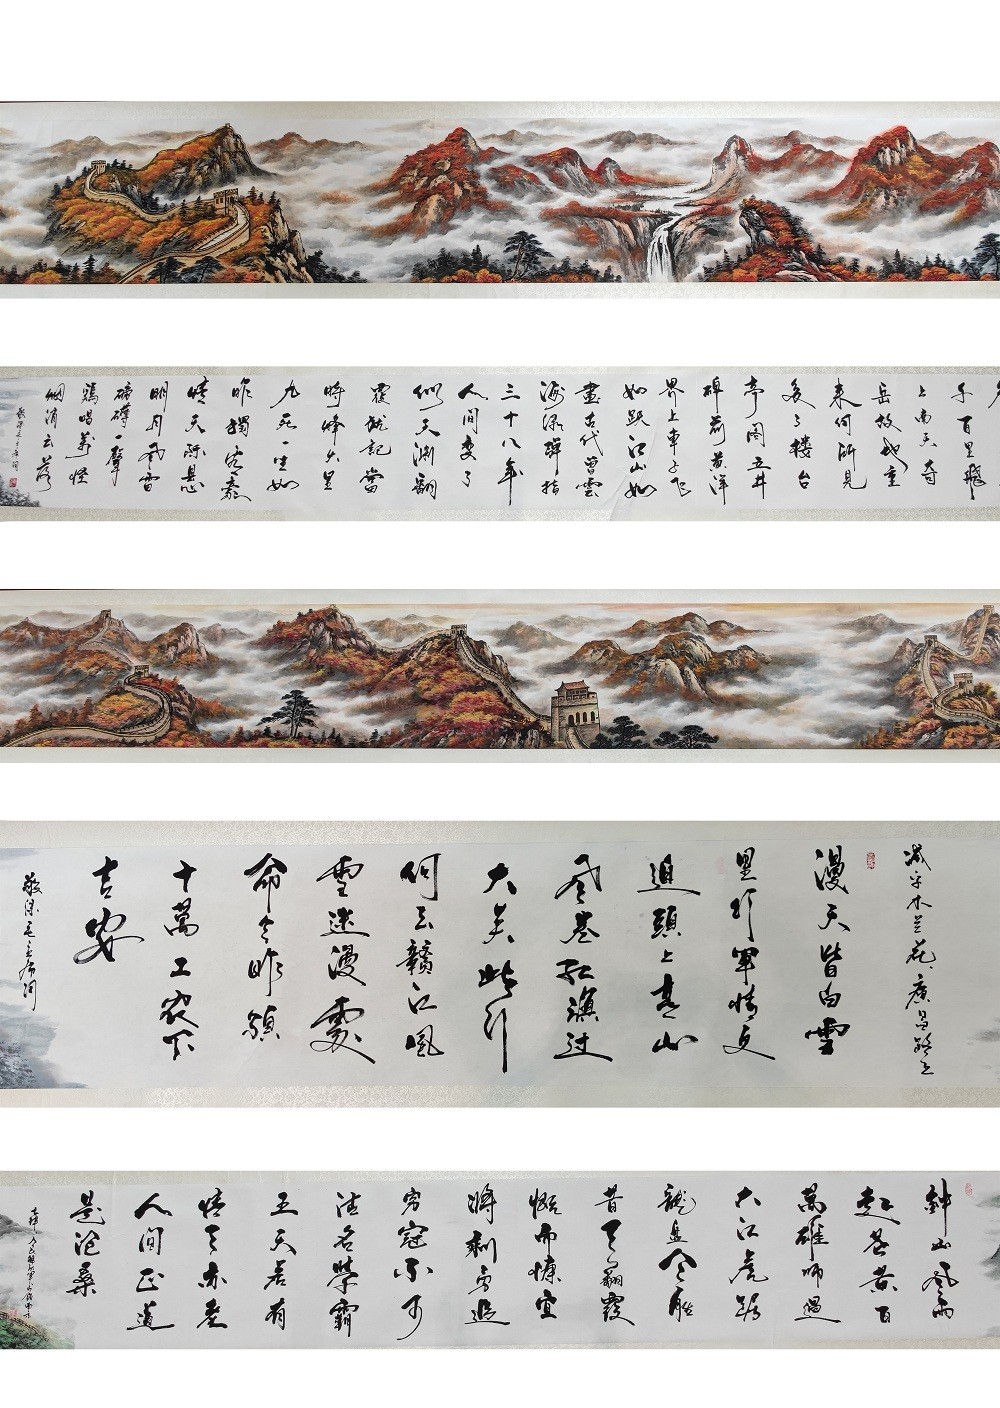 千百里飛
上南天奇
岳故地重
来何所見
多了楼台
亭阁五井
碑前黄洋
界上車子飞
如跃江山如
畫古代曾雲
海绿弹指
三十八年
人间变了
似天渊翻
覆犹記當
時烽火里
九死一生如
昨獨有豪
情天际悬
明月风雷
磅礴一聲
鷄唱萬怪
烟消云落
敬录毛主席词
减字木兰花、廣昌路上
漫天皆白雪
里行軍情更
迫頭上高山
风卷红旗过
大关此行
何去赣江風
雪迷漫處
命令昨頒
十萬工农下
吉安
敬录毛主席词
鈡山风雨
起苍黄百
萬雄师過
大江虎踞
龍盘今胜
昔天翻覆
慨而慷宜
將剩勇追
穷寇不可
沽名學霸
王天若有
情天亦老
人间正道
是沧桑
七律人民解放军占领南京